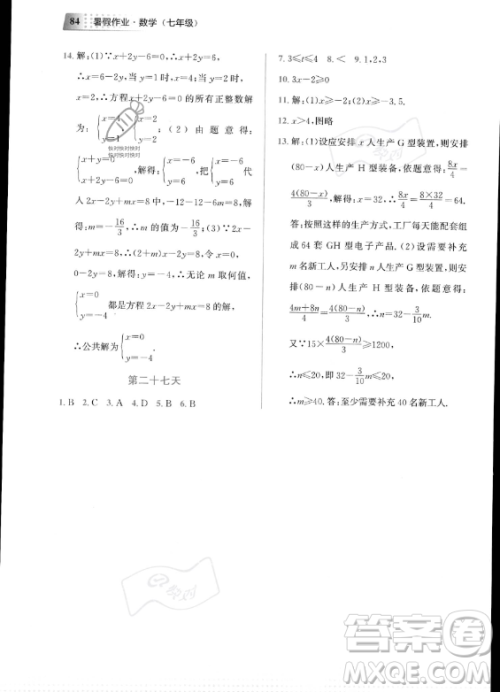 84 暑假作业·数学（七年级）
14. 解：(1)∵x+2y-6=0，
∴x=6-2y，当 y=1 时，x=4；当 y=2 时，
∴方程 x+2y-6=0 的所有正整数解
为：{x=4 y=1，{x=2 y=2；(2) 由题意得：
{x+y=0 x+2y-6=0，解得：{x=-6 y=6，把{x=-6 y=6代
入 2x-2y+mx=8 中，-12-12-6m=8，
解得：m=-16/3，∴m 的值为-16/3；(3)∵当 x=0，
0-2y=8，解得：y=-4，∴无论 m 取何值，
{x=0 y=-4 都是方程 2x-2y+mx=8 的解，
∴公共解为{x=0 y=-4
第二十七天
1. B 2. C 3. A 4. D 5. B 6. B
7. 3≤t≤4 8. < 9. 1，2，3
10. 3x-2≥0
11. 解：(1)x≥-2；(2)x>-3.5.
12. x>4，图略
13. 解：(1)设应安排 x 人生产 G 型装置，则安排
(80-x)人生产 H 型装备，依题意得：8x/4=
4(80-x)/3，解得：x=32，∴8x/4=8×32/4=64.
答：按照这样的生产方式，工厂每天能配套组
成 64 套 GH 型电子产品. (2)设需要补充
m 名新工人，另安排 n 人生产 G 型装置，则安
排(80-n)人生产 H 型装备，依题意得：
4m+8n/4=4(80-n)/3，∴n=32-3/10m.
又∵15×4(80-n)/3≥1200，
∴n≤20，即 32-3/10m≤20，
∴m≥40. 答：至少需要补充 40 名新工人.
快对
答案圈
MXQE.COM